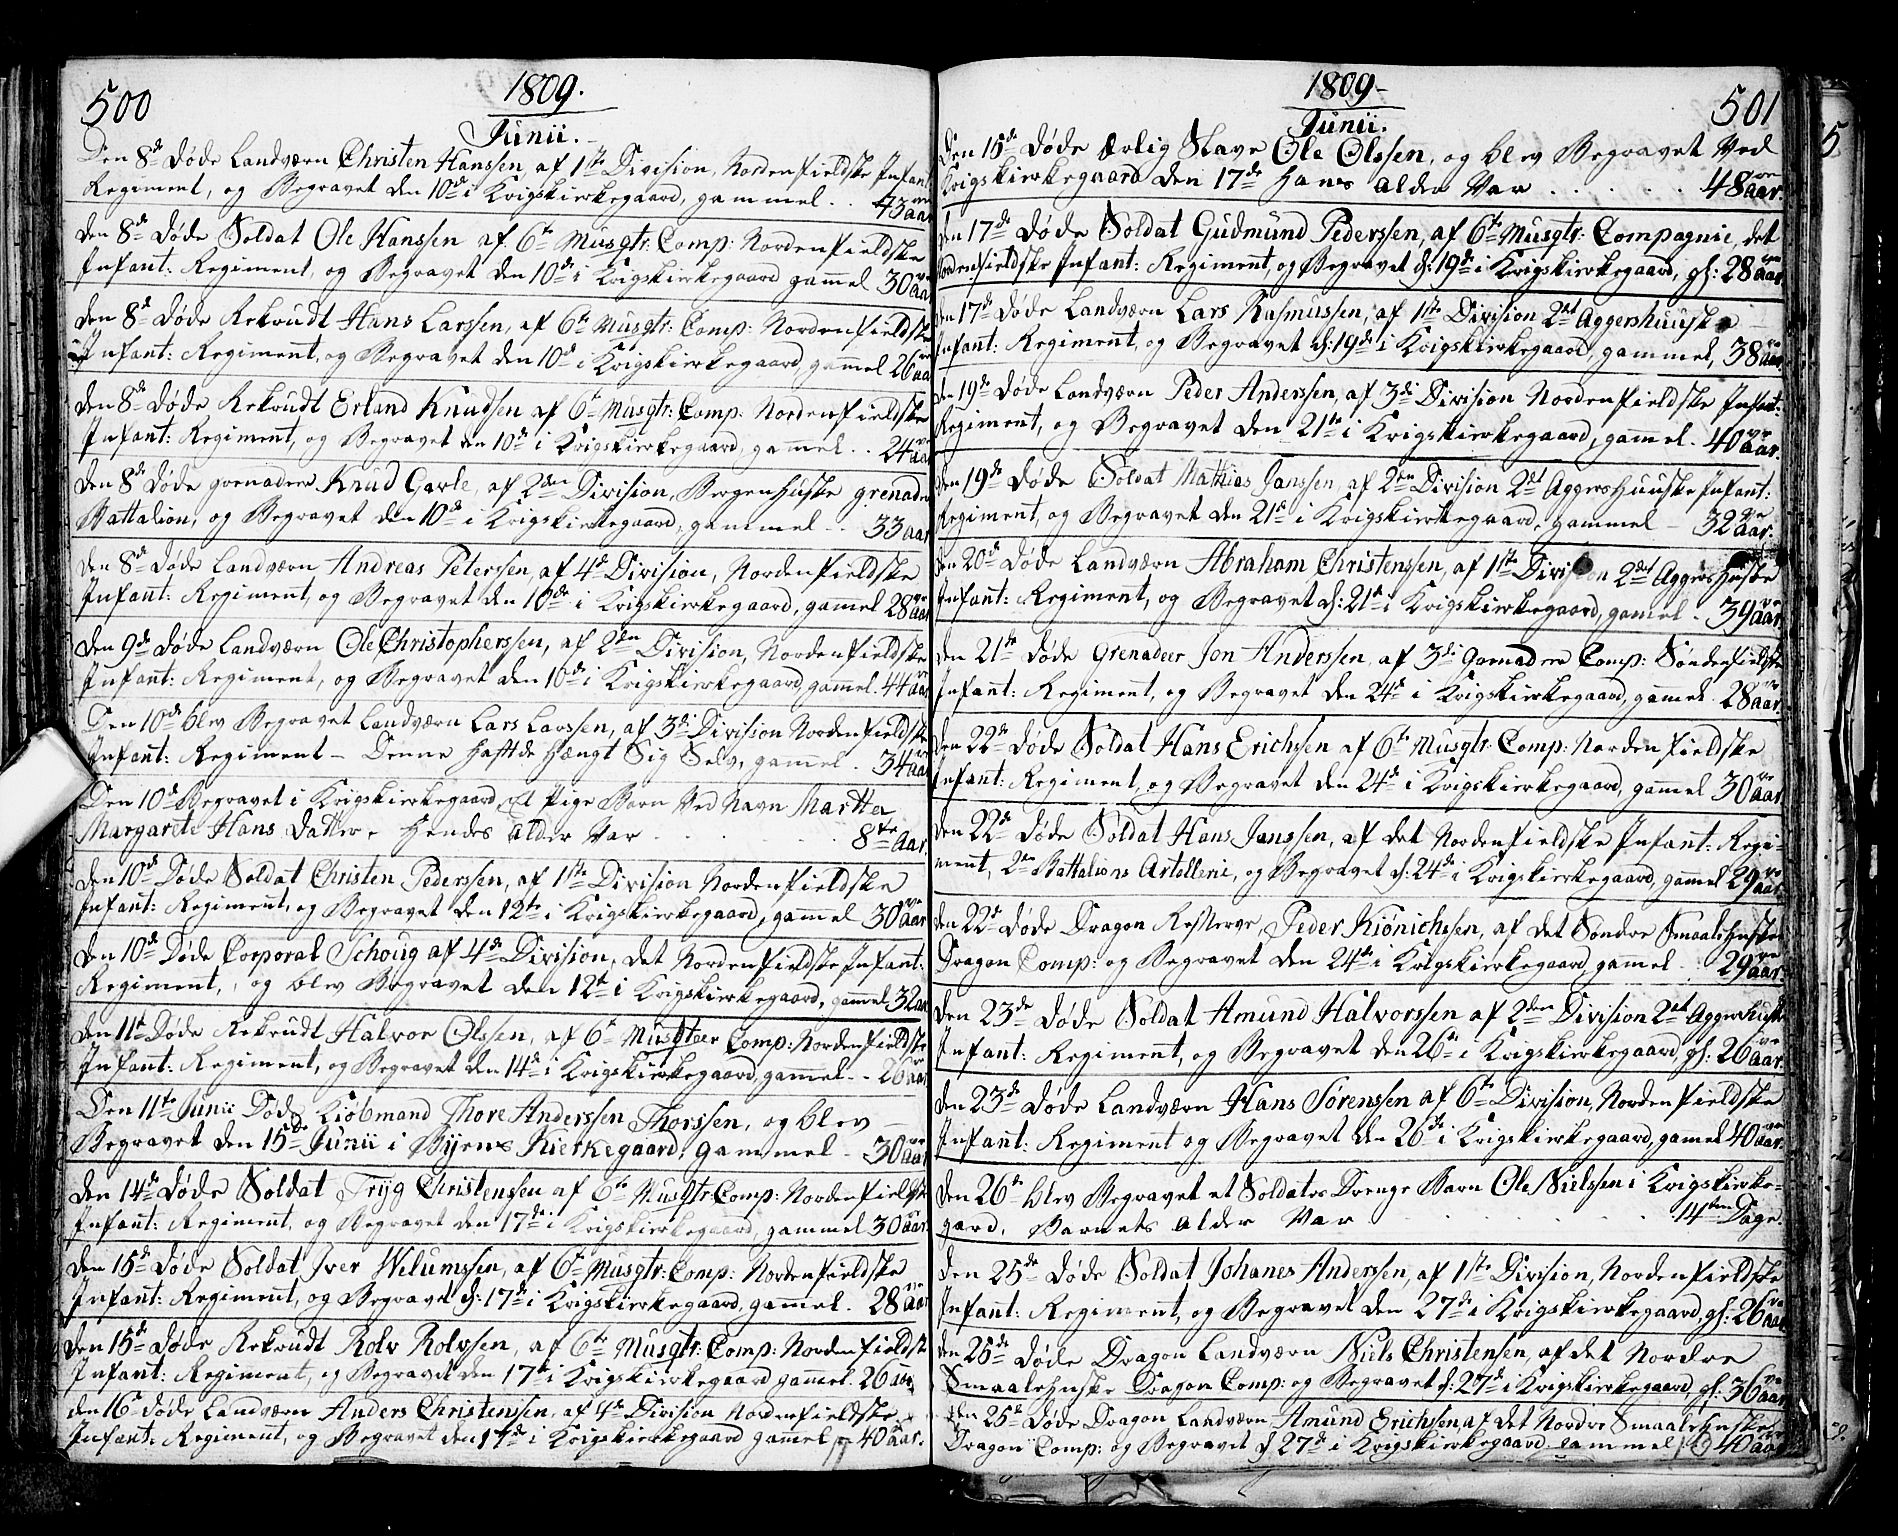 500
1809.
Junii.
Den 8de døde Landværn Christen Hanssen, af 1ste Division, Nordenfieldske Infant:
Regiment, og Begravet den 10de i Krigskierkegaard, gammel . . 43 aar
den 8de døde Soldat Ole Hanssen af 6te Musqtr: Comp: Nordenfieldske
Infant: Regiment, og Begravet den 10de i Krigskierkegaard gam̅el 30 aar
den 8de døde Rekrudt Hans Larssen, af 6te Musqtr: Comp: Nordenfieldske
Infant: Regiment, og Begravet den 10de i Krigskierkegaard, gam̅el 26 aar
den 8de døde Rekrudt Erland Knudsen af 6te Musqtr: Comp: Nordenfieldske
Infant: Regiment, og Begravet den 10de i Krigskierkegaard, gammel . . 24 aar
den 8de døde grenadeer Knud Garle, af 2den Division, Bergenhuske grenadeer
Battalion, og Begravet den 10de i Krigskierkegaard, gammel . . 33 aar
den 8de døde Landværn Andreas Peterssen, af 4de Division, Nordenfieldske
Infant: Regiment, og Begravet den 10de i Krigskierkegaard, gam̅el 28 aar
den 9de døde Landværn Ole Christopherssen, af 2den Division, Nordenfieldske
Infant: Regiment, og Begravet den 10de i Krigskierkegaard, gam̅el. 44 aar
Den 10de blev Begravet Landværn Lars Larssen, af 3die Division Nordenfieldske
Infant: Regiment – Denne hafde hængt Sig Selv, gamel . 34 aar
Den 10de Begravet i Krigskierkegaard, Et Pige Barn Ved Navn Martha
Margarete Hans datter, Hendes alder Var . . . 8te Aar.
den 10de Døde Soldat Christen Pederssen, af 1ste Division Nordenfieldske
Infant: Regiment, og Begravet den 12te i Krigskierkegaard, gam̅el 30 aar
den 10de Døde Corporal Schoug af 4de Division, det Nordenfieldske Infant:
Regiment, og blev Begravet den 12te i Krigskierkegaard, gam̅el 32 aar
den 11te Døde Rekrudt Halvor Olssen, af 6te Musqteer Comp: Nordenfieldske
Infant: Regiment, og Begravet den 14de i Krigskierkegaard, gam̅el . . 26 aar
Den 11te Junii Døde Kiøbmand Thore Anderssen Thorssen, og blev –
Begravet den 15de Junii i Byens Kierkegaard, gammel . 30 aar
den 14de døde Soldat Tryg Christenssen af 6te Musqtr: Comp: Nordenfieldske
Infant: Regiment, og Begravet den 17de i Krigskierkegaard, gammel 30 aar.
den 15de døde Soldat Iver Welumssen, af 6te Musqtr: Comp: Nordenfieldske
Infant: Regiment, og Begravet d: 17de i Krigskierkegaard, gam̅el. 28 aar
den 15de døde Rekrudt Rolv Rolvsen, af 6te Musqtr: Comp: Nordenfieldske
Infant: Regiment, og Begravet den 17de i Krigskierkegaard gam̅el. 26 aar
den 16de døde Landværn Anders Christensen, af 4de Division Nordenfieldske
Infant: Regiment, og Begravet den 17de i Krigskierkegaard gam̅el 40 aar.
1809 –
501
Junii.
Den 15de døde Ærlig Slave Ole Olssen, og blev Begravet Ved
Krigskierkegaard den 17de hans alder Var . . . . . 48 aar.
den 17de døde Soldat Gudmund Pederssen, af 6te Musqtr: Compagnie, det
Nordenfieldske Infant: Regiment, og Begravet d: 19de i Krigskierkegaard, gl: 28 aar
den 17de døde Landværn Lars Rasmussen, af 1ste Division 2det Aggershuuske –
Infant: Regiment, og Begravet d: 19de i Krigskierkegaard, gammel, 38 aar
den 19de døde Landværn Peder Anderssen, af 3die Division Nordenfieldske Infant:
Regiment, og Begravet den 21te i Krigskierkegaard, gamel. 40 aar.
den 19de døde Soldat Mathias Janssen, af 2den Division 2det Aggershuuske Infant:
Regiment, og Begravet den 21de i Krigskierkegaard, gammel – 32 aar.
den 20de døde Landværn Abraham Christenssen, af 1ste Division 2det Aggershuske
Infant: Regiment, og Begravet d: 21de i Krigskierkegaard, gamel . 39 aar
den 21te døde Grenadeer Jon Anderssen, af 3die Grenadeer Comp: Søndenfieldske
Infant: Regiment, og Begravet den 24de i Krigskierkegaard, gam̅el. 28 aar.
den 22de døde Soldat Hans Erichssen af 6te Musqtr: Comp: Nordenfieldske
Infant: Regiment, og Begravet den 24de i Krigskierkegaard, gam̅el 30 aar
den 22de døde Soldat Hans Janssen, af det Nordenfieldske Infant: Regi-
ment, 2den Battalions Artelleri, og Begravet d: 24de i Krigskierkegaard, gam̅el 29 aar
den 22de døde Dragon Reserve, Peder Kiönichssen, af det Søndre Smaalehnske
Dragon Comp: og Begravet den 24de i Krigskierkegaard, gam̅el . 29 aar.
den 23de døde Soldat Amund Halvorssen af 2den Division 2det Aggershuske
Infant: Regiment, og Begravet den 26de i Krigskierkegaard, gl: 26 aar
den 23de døde Landværn Hans Sørenssen af 6te Division, Nordenfieldske
Infant: Regiment og Begravet den 26de i Krigskierkegaard, gam̅el 40 aar.
den 26de blev Begravet et Soldates Drenge Barn Ole Nielssen i Krigskierke-
gaard, Barnets alder Var . . . . . . 14ten Dage.
Den 25de døde Soldat Johanes Anderssen, af 1ste Division, Nordenfieldske
Infant: Regiment, og Begravet den 27de i Krigskierkegaard, gl: 26 aar
den 25de døde Dragon Landværn Niels Christensen, af det Nordre
Smaalehnske Dragon Comp: og Begravet d: 27de i Krigskierkegaard, gl: 36 aar
den 25de Døde Dragon Landværn, Amund Erichsen, af det Nordre Smaalehnske
Dragon Comp: og Begravet d 27de i Krigskierkegaard, gammel 40 aar